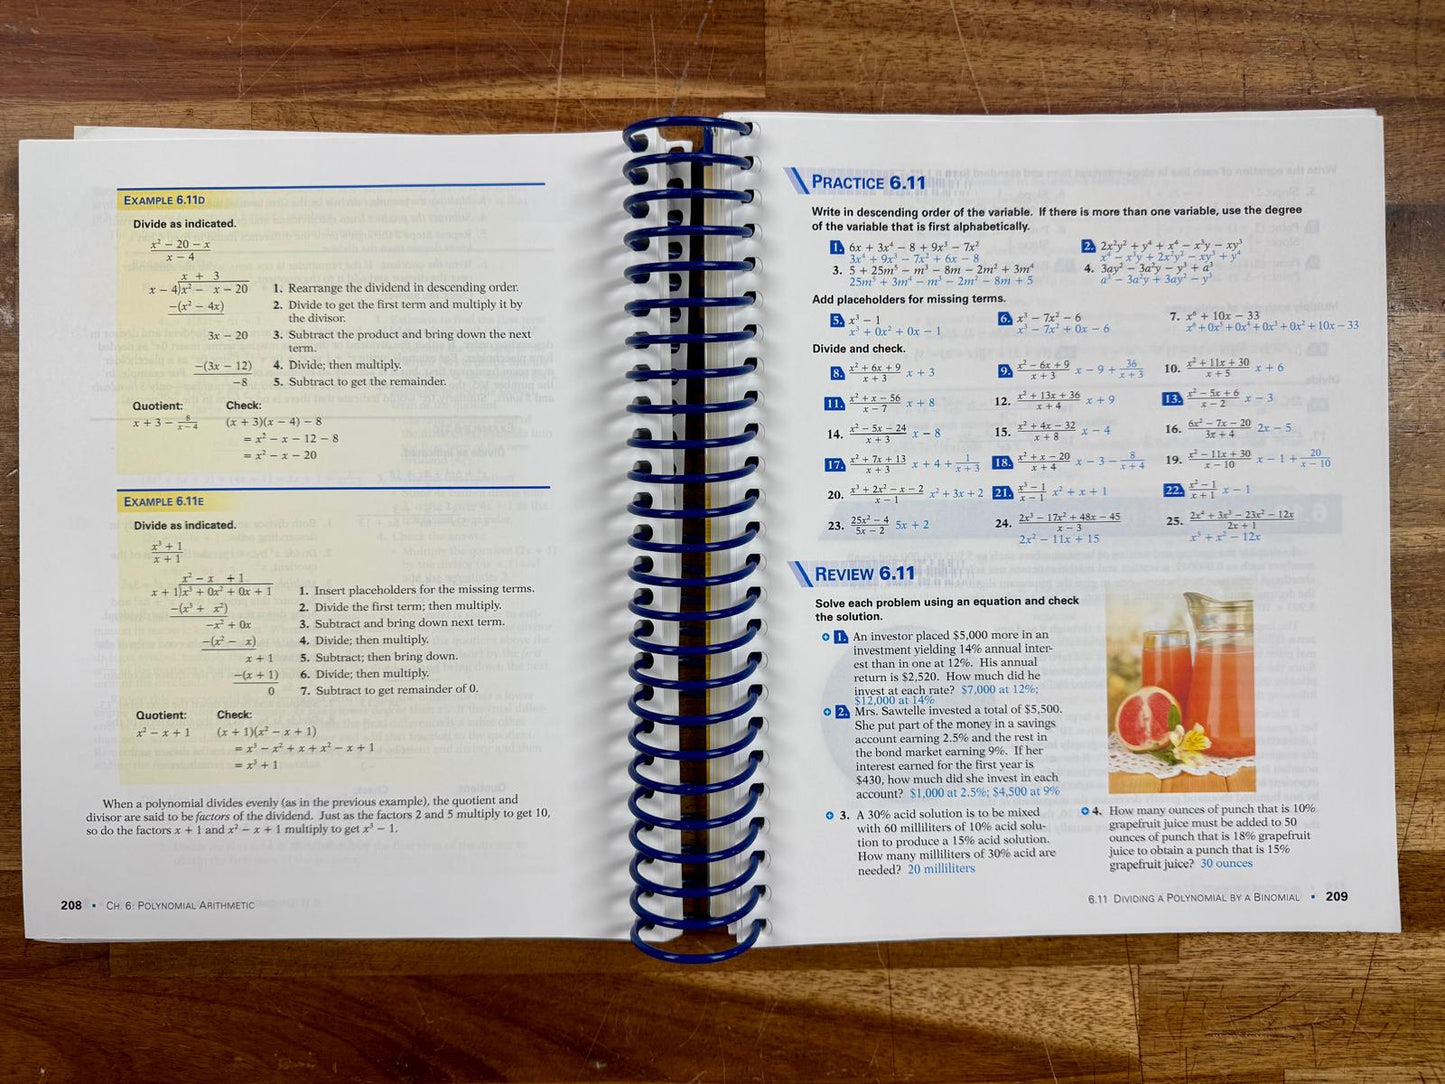 EXAMPLE 6.11D
Divide as indicated.
x² − 20 − x
x − 4
x + 3
x − 4)x² − x − 20
−(x² − 4x)
3x − 20
−(3x − 12)
−8
1. Rearrange the dividend in descending order.
2. Divide to get the first term and multiply it by
the divisor.
3. Subtract the product and bring down the next
term.
4. Divide; then multiply.
5. Subtract to get the remainder.
Quotient: Check:
x + 3 − 8/x−4 (x + 3)(x − 4) − 8
= x² − x − 12 − 8
= x² − x − 20
EXAMPLE 6.11E
Divide as indicated.
x³ + 1
x + 1
x² − x + 1
x + 1)x³ + 0x² + 0x + 1
−(x³ + x²)
−x² + 0x
−(x² − x)
x + 1
−(x + 1)
0
1. Insert placeholders for the missing terms.
2. Divide the first term; then multiply.
3. Subtract and bring down next term.
4. Divide; then multiply.
5. Subtract; then bring down.
6. Divide; then multiply.
7. Subtract to get remainder of 0.
Quotient: Check:
x² − x + 1 (x + 1)(x² − x + 1)
= x³ − x² + x + x² − x + 1
= x³ + 1
When a polynomial divides evenly (as in the previous example), the quotient and
divisor are said to be factors of the dividend. Just as the factors 2 and 5 multiply to get 10,
so do the factors x + 1 and x² − x + 1 multiply to get x³ − 1.
208 • CH. 6: POLYNOMIAL ARITHMETIC
PRACTICE 6.11
Write in descending order of the variable. If there is more than one variable, use the degree
of the variable that is first alphabetically.
1. 6x + 3x⁴ − 8 + 9x³ − 7x²
3x⁴ + 9x³ − 7x² + 6x − 8
2. 2x²y² + y⁴ + x⁴ − x³y − xy³
x⁴ − x³y + 2x²y² − xy³ + y⁴
3. 5 + 25m⁵ − m³ − 8m − 2m² + 3m⁴
25m⁵ + 3m⁴ − m³ − 2m² − 8m + 5
4. 3ay² − 3a²y − y³ + a³
a³ − 3a²y + 3ay² − y³
Add placeholders for missing terms.
5. x³ − 1
x³ + 0x² + 0x − 1
6. x³ − 7x² − 6
x³ − 7x² + 0x − 6
7. x⁶ + 10x − 33
x⁶ + 0x⁵ + 0x⁴ + 0x³ + 0x² + 10x − 33
Divide and check.
8. x² + 6x + 9 / x + 3 x + 3
9. x² − 6x + 9 / x + 3 x − 9 + 36/x + 3
10. x² + 11x + 30 / x + 5 x + 6
11. x² + x − 56 / x − 7 x + 8
12. x² + 13x + 36 / x + 4 x + 9
13. x² − 5x + 6 / x − 2 x − 3
14. x² − 5x − 24 / x + 3 x − 8
15. x² + 4x − 32 / x + 8 x − 4
16. 6x² − 7x − 20 / 3x + 4 2x − 5
17. x² + 7x + 13 / x + 3 x + 4 + 1/x + 3
18. x² + x − 20 / x + 4 x − 3 − 8/x + 4
19. x² − 11x + 30 / x − 10 x − 1 + 20/x − 10
20. x³ + 2x² − x − 2 / x − 1 x² + 3x + 2
21. x³ − 1 / x − 1 x² + x + 1
22. x² − 1 / x + 1 x − 1
23. 25x² − 4 / 5x − 2 5x + 2
24. 2x³ − 17x² + 48x − 45 / x − 3
2x² − 11x + 15
25. 2x⁴ + 3x³ − 23x² − 12x / 2x + 1
x³ + x² − 12x
REVIEW 6.11
Solve each problem using an equation and check
the solution.
1. An investor placed $5,000 more in an
investment yielding 14% annual inter-
est than in one at 12%. His annual
return is $2,520. How much did he
invest at each rate? $7,000 at 12%;
$12,000 at 14%
2. Mrs. Sawtelle invested a total of $5,500.
She put part of the money in a savings
account earning 2.5% and the rest in
the bond market earning 9%. If her
interest earned for the first year is
$430, how much did she invest in each
account? $1,000 at 2.5%; $4,500 at 9%
3. A 30% acid solution is to be mixed
with 60 milliliters of 10% acid solu-
tion to produce a 15% acid solution.
How many milliliters of 30% acid are
needed? 20 milliliters
4. How many ounces of punch that is 10%
grapefruit juice must be added to 50
ounces of punch that is 18% grapefruit
juice to obtain a punch that is 15%
grapefruit juice? 30 ounces
6.11 DIVIDING A POLYNOMIAL BY A BINOMIAL • 209